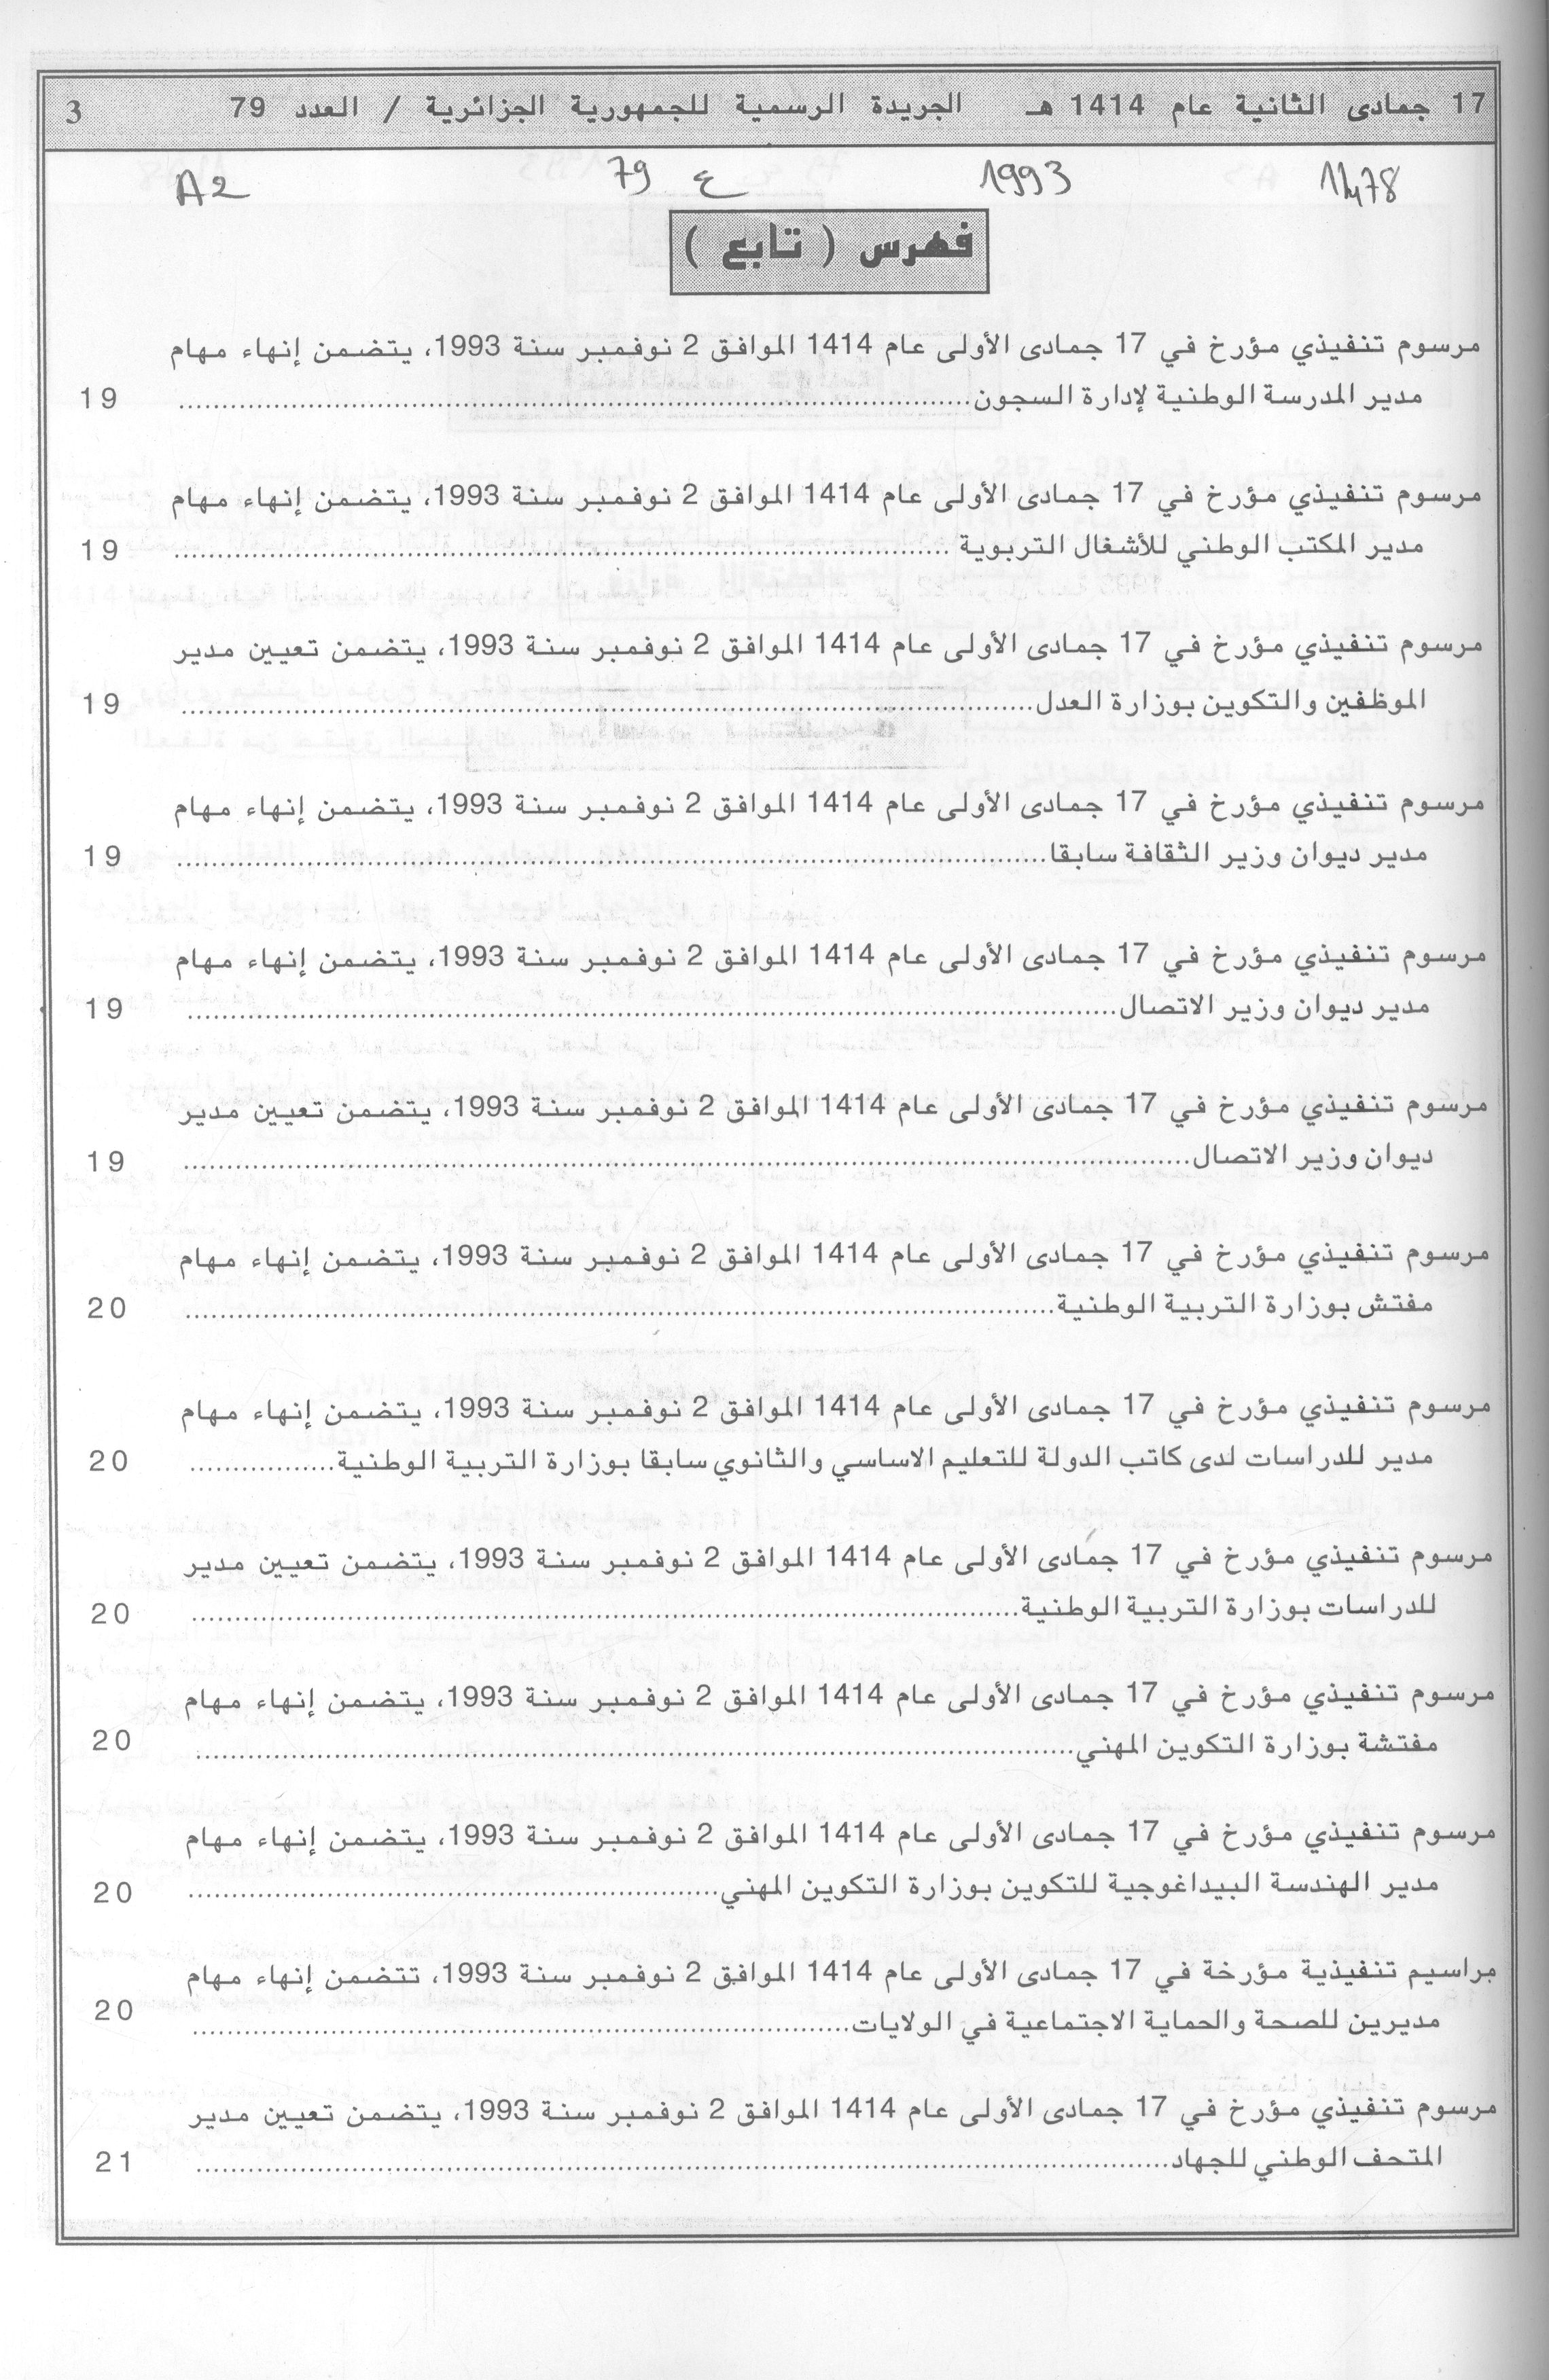 17 جمادى الثانية عام 1414 هـ الجريدة الرسمية للجمهورية الجزائرية / العدد 79 3
1993 ع 79 A2
فهرس ( تابع )
مرسوم تنفيذي مؤرخ في 17 جمادى الأولى عام 1414 الموافق 2 نوفمبر سنة 1993، يتضمن إنهاء مهام
مدير المدرسة الوطنية لإدارة السجون 19
مرسوم تنفيذي مؤرخ في 17 جمادى الأولى عام 1414 الموافق 2 نوفمبر سنة 1993، يتضمن إنهاء مهام
مدير المكتب الوطني للأشغال التربوية 19
مرسوم تنفيذي مؤرخ في 17 جمادى الأولى عام 1414 الموافق 2 نوفمبر سنة 1993، يتضمن تعيين مدير
الموظفين والتكوين بوزارة العدل 19
مرسوم تنفيذي مؤرخ في 17 جمادى الأولى عام 1414 الموافق 2 نوفمبر سنة 1993، يتضمن إنهاء مهام
مدير ديوان وزير الثقافة سابقا 19
مرسوم تنفيذي مؤرخ في 17 جمادى الأولى عام 1414 الموافق 2 نوفمبر سنة 1993، يتضمن إنهاء مهام
مدير ديوان وزير الاتصال 19
مرسوم تنفيذي مؤرخ في 17 جمادى الأولى عام 1414 الموافق 2 نوفمبر سنة 1993، يتضمن تعيين مدير
ديوان وزير الاتصال 19
مرسوم تنفيذي مؤرخ في 17 جمادى الأولى عام 1414 الموافق 2 نوفمبر سنة 1993، يتضمن إنهاء مهام
مفتش بوزارة التربية الوطنية 20
مرسوم تنفيذي مؤرخ في 17 جمادى الأولى عام 1414 الموافق 2 نوفمبر سنة 1993، يتضمن إنهاء مهام
مدير للدراسات لدى كاتب الدولة للتعليم الاساسي والثانوي سابقا بوزارة التربية الوطنية 20
مرسوم تنفيذي مؤرخ في 17 جمادى الأولى عام 1414 الموافق 2 نوفمبر سنة 1993، يتضمن تعيين مدير
للدراسات بوزارة التربية الوطنية 20
مرسوم تنفيذي مؤرخ في 17 جمادى الأولى عام 1414 الموافق 2 نوفمبر سنة 1993، يتضمن إنهاء مهام
مفتشة بوزارة التكوين المهني 20
مرسوم تنفيذي مؤرخ في 17 جمادى الأولى عام 1414 الموافق 2 نوفمبر سنة 1993، يتضمن إنهاء مهام
مدير الهندسة البيداغوجية للتكوين بوزارة التكوين المهني 20
مراسيم تنفيذية مؤرخة في 17 جمادى الأولى عام 1414 الموافق 2 نوفمبر سنة 1993، تتضمن إنهاء مهام
مديرين للصحة والحماية الاجتماعية في الولايات 20
مرسوم تنفيذي مؤرخ في 17 جمادى الأولى عام 1414 الموافق 2 نوفمبر سنة 1993، يتضمن تعيين مدير
المتحف الوطني للجهاد 21